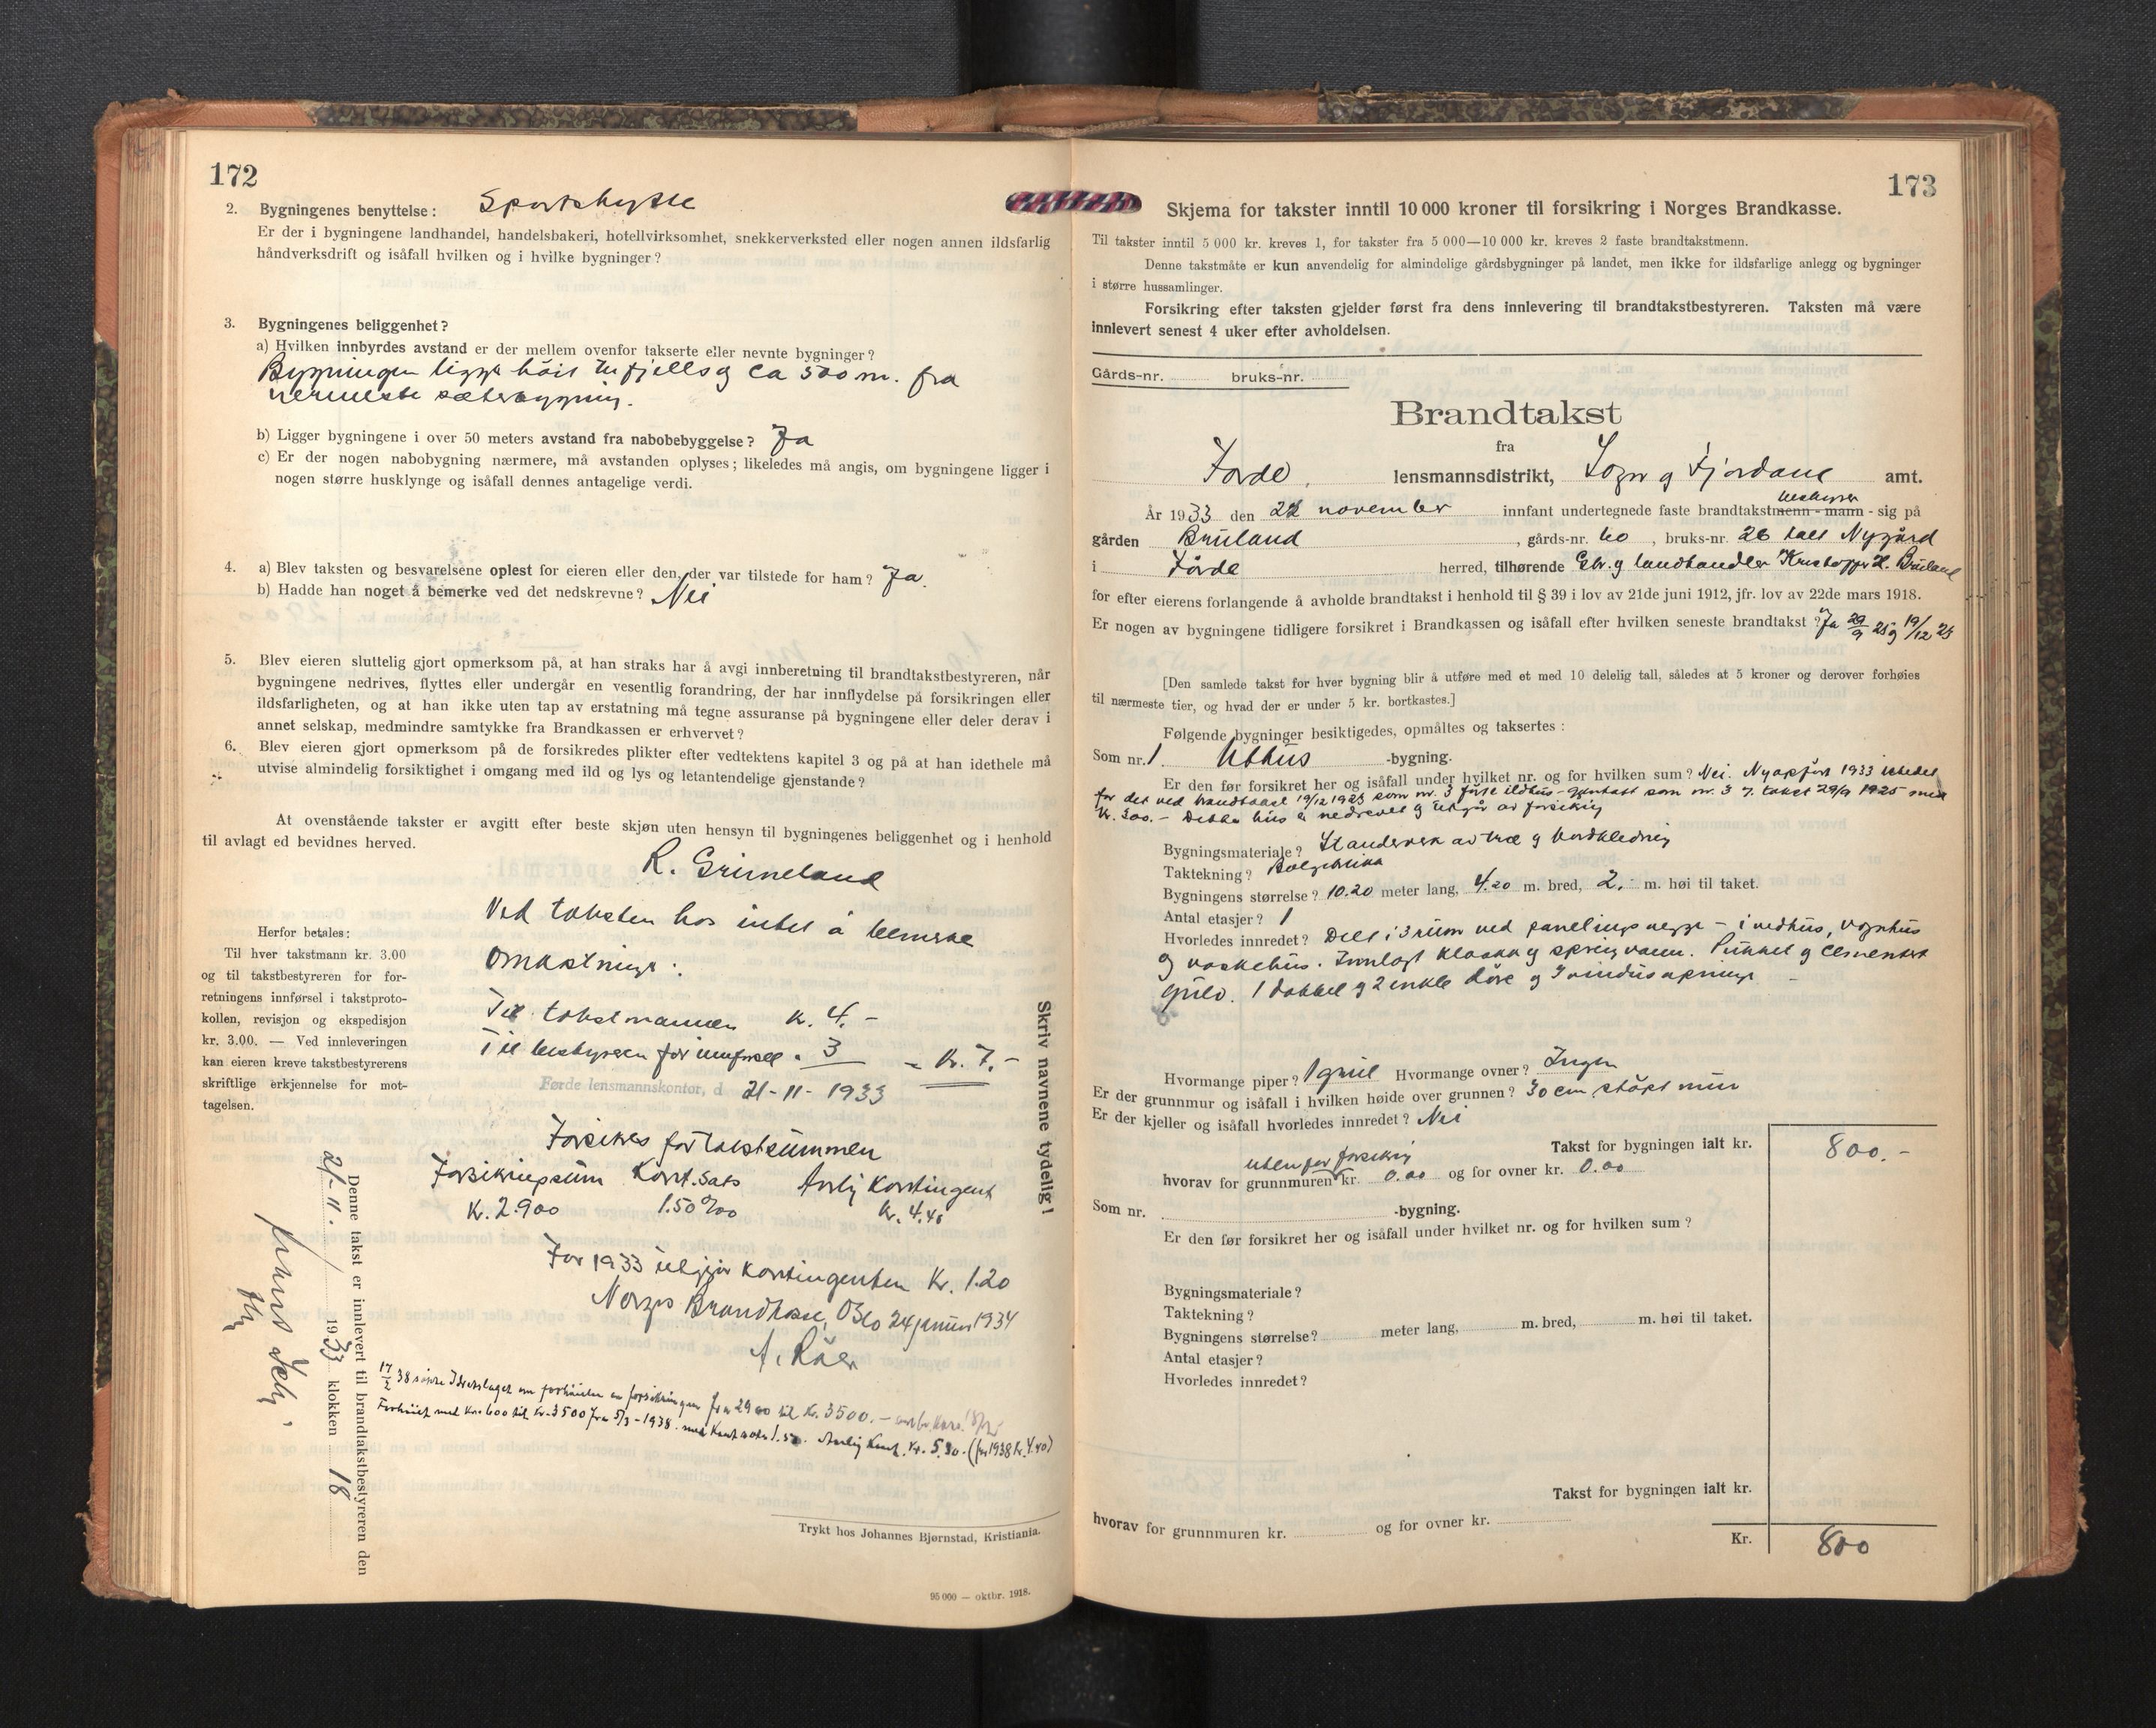 172
2. Bygningenes benyttelse: Sportshytte
Er der i bygningene landhandel, handelsbakeri, hotellvirksomhet, snekkerverksted eller nogen annen ildsfarlig
håndverksdrift og isåfall hvilken og i hvilke bygninger?
3. Bygningenes beliggenhet?
a) Hvilken innbyrdes avstand er der mellem ovenfor takserte eller nevnte bygninger?
Bygningen ligger høit til fjells og ca 500 m. fra
nermeste sæterbygning.
b) Ligger bygningene i over 50 meters avstand fra nabobebyggelse? Ja
c) Er der nogen nabobygning nærmere, må avstanden oplyses; likeledes må angis, om bygningene ligger i
nogen større husklynge og isåfall dennes antagelige verdi.
4. a) Blev taksten og besvarelsene oplest for eieren eller den, der var tilstede for ham? Ja.
b) Hadde han noget å bemerke ved det nedskrevne? Nei
5. Blev eieren sluttelig gjort opmerksom på, at han straks har å avgi innberetning til brandtakstbestyreren, når
bygningene nedrives, flyttes eller undergår en vesentlig forandring, der har innflydelse på forsikringen eller
ildsfarligheten, og at han ikke uten tap av erstatning må tegne assuranse på bygningene eller deler derav i
annet selskap, medmindre samtykke fra Brandkassen er erhvervet?
6. Blev eieren gjort opmerksom på de forsikredes plikter efter vedtektens kapitel 3 og på at han idethele må
utvise almindelig forsiktighet i omgang med ild og lys og letantendelige gjenstande?
At ovenstående takster er avgitt efter beste skjøn uten hensyn til bygningenes beliggenhet og i henhold
til avlagt ed bevidnes herved.
R. Grimeland
Ved taksten has intet å bemerke
Omkostninger:
Til takstmannen kr. 4.-
Til bestyreren for innførsel " 3 = kr. 7.-
Førde lensmannskontor, d 21-11-1933
Herfor betales:
Til hver takstmann kr. 3.00
og til takstbestyreren for for-
retningens innførsel i takstproto-
kollen, revisjon og ekspedisjon
kr. 3.00. — Ved innleveringen
kan eieren kreve takstbestyrerens
skriftlige erkjennelse for mot-
tagelsen.
Skriv navnene tydelig!
Forsikres for takstsummen
Forsikringssum Kont. sats Årlig Kontingent
Kr. 2.900 1.50 ‰ Kr. 4.40
For 1933 utgjør kontingenten Kr. 1.20
Norges Brandkasse, Oslo 24 januar 1934
A. Röer
Denne takst er innlevert til brandtakstbestyreren den
21-11. 1933 klokken 18
17/2 38 søkte Idrettslaget om forhøielse av forsikringen fra 2900 til Kr. 3500.-
Forhøiet med Kr. 600 til Kr. 3500 fra 5/3-1938. med Kont sats 1.50. Årlig Kont. Kr. 5.30. (for 1938 kr. 4.40)
Trykt hos Johannes Bjørnstad, Kristiania.
95 000 — oktbr. 1918.
173
Skjema for takster inntil 10 000 kroner til forsikring i Norges Brandkasse.
Til takster inntil 5 000 kr. kreves 1, for takster fra 5 000—10 000 kr. kreves 2 faste brandtakstmenn.
Denne takstmåte er kun anvendelig for almindelige gårdsbygninger på landet, men ikke for ildsfarlige anlegg og bygninger
i større hussamlinger.
Forsikring efter taksten gjelder først fra dens innlevering til brandtakstbestyreren. Taksten må være
innlevert senest 4 uker efter avholdelsen.
Gårds-nr. bruks-nr.
Brandtakst
fra
Førde lensmannsdistrikt, Sogn og Fjordane amt.
År 1933 den 22 november innfant undertegnede faste brandtakstmenn - mann - bestyrer sig på
gården Bruland, gårds-nr. 60, bruks-nr. 26 kalt Nygård
i Førde herred, tilhørende Gbr. og landhandler Kristoffer H. Bruland
for efter eierens forlangende å avholde brandtakst i henhold til § 39 i lov av 21de juni 1912, jfr. lov av 22de mars 1918.
Er nogen av bygningene tidligere forsikret i Brandkassen og isåfall efter hvilken seneste brandtakst? Ja 29/9 25 og 19/12 23
[Den samlede takst for hver bygning blir å utføre med et med 10 delelig tall, således at 5 kroner og derover forhøies
til nærmeste tier, og hvad der er under 5 kr. bortkastes.]
Følgende bygninger besiktigedes, opmåltes og taksertes:
Som nr. 1 Uthus -bygning.
Er den før forsikret her og isåfall under hvilket nr. og for hvilken sum? Nei. Nyopført 1933 istedet
for det ved brandtakst 19/12 1923 som nr. 3 førte ildhus - gjentatt som nr. 3 i takst 29/9 1925 med
kr. 300.- Dette hus er nedrevet og utgår av forsikring
Bygningsmateriale? Standverk av træ og bordkledning
Taktekning? Bølgeblikk
Bygningens størrelse? 10.20 meter lang, 4.20 m. bred, 2.- m. høi til taket.
Antal etasjer? 1
Hvorledes innredet? Delt i 3 rum ved panelingsvegge - i vedhus, vognhus
og vaskehus. Innlagt kloakk og springvann. Pukket og cementert
gulv. 1 dobbel og 2 enkle døre og 3 vindusåpninger -
Hvormange piper? 1 grue Hvormange ovner? Ingen
Er der grunnmur og isåfall i hvilken høide over grunnen? 30 cm støpt mur
Er der kjeller og isåfall hvorledes innredet? Nei
Takst for bygningen ialt kr. 800.-
hvorav for grunnmuren utenfor forsikring kr. 0.00 og for ovner kr. 0.00
Som nr. -bygning.
Er den før forsikret her og isåfall under hvilket nr. og for hvilken sum?
Bygningsmateriale?
Taktekning?
Bygningens størrelse? meter lang, m. bred, m. høi til taket.
Antal etasjer?
Hvorledes innredet?
Takst for bygningen ialt kr.
hvorav for grunnmuren kr. og for ovner kr.
Kr. 800